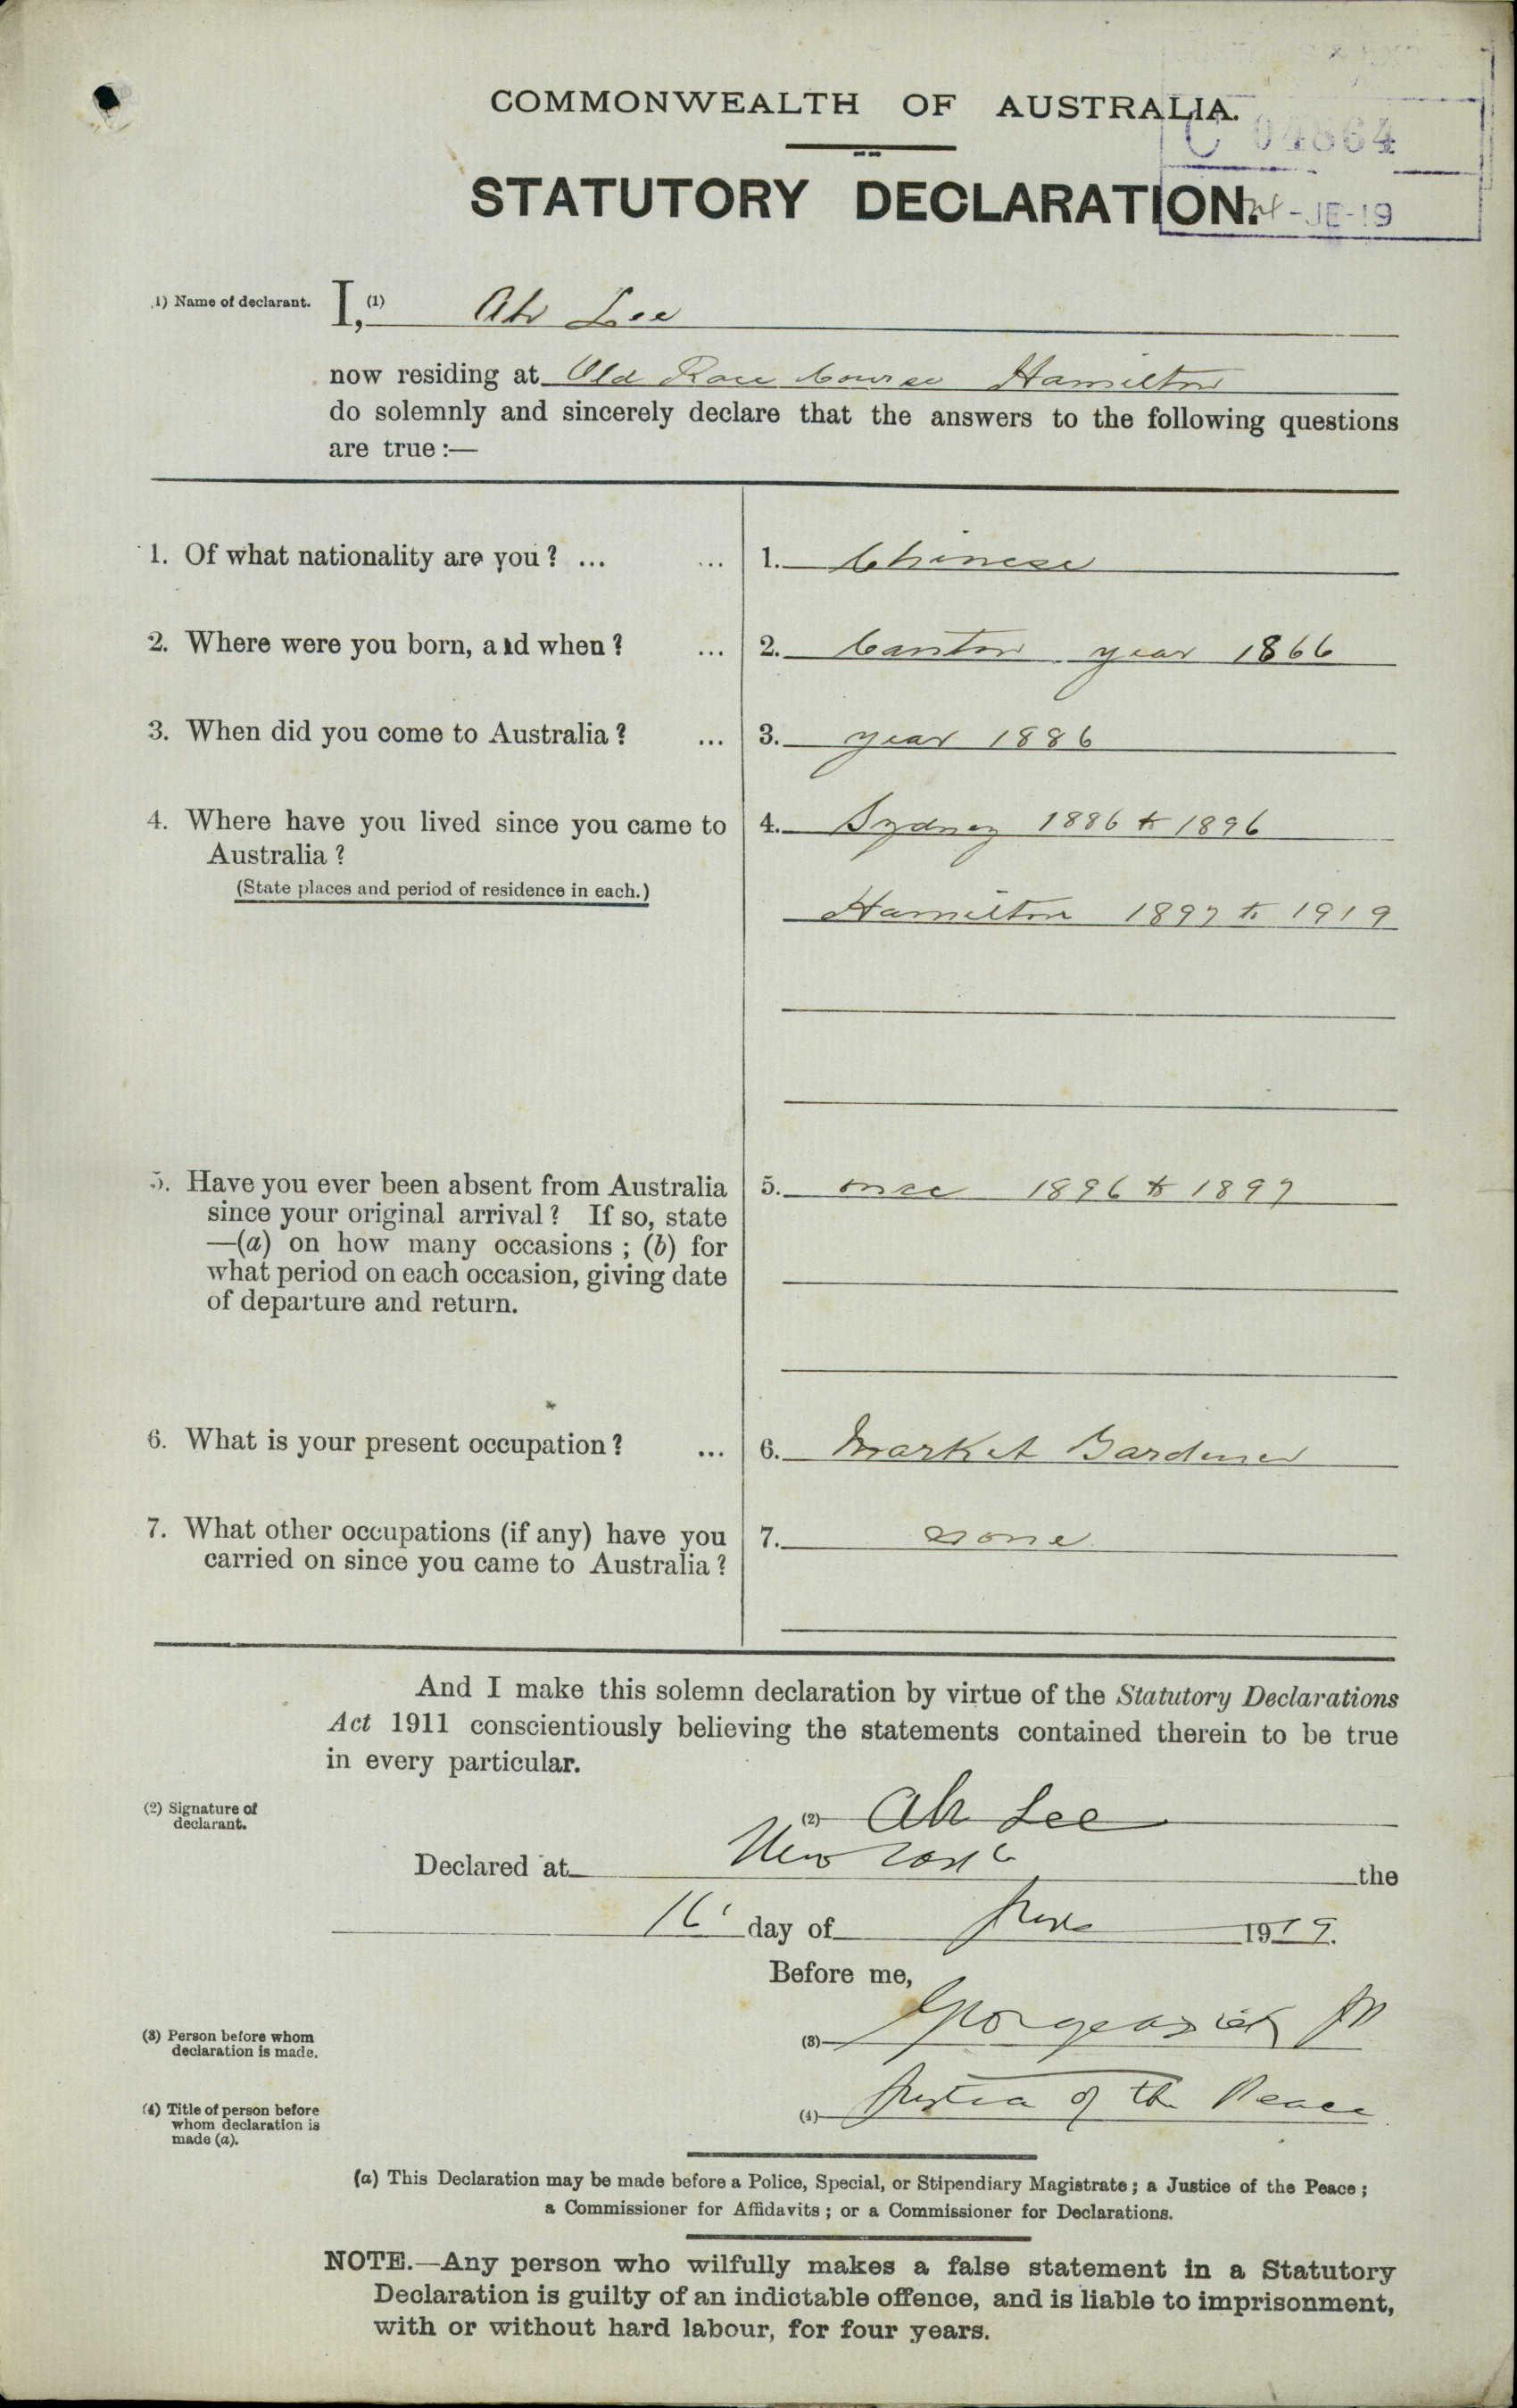 COMMONWEALTH OF AUSTRALIA.
C 04864
STATUTORY DECLARATION.
-JE-19
1) Name of declarant. I, (1) Ah Lee
now residing at Old Race Course Hamilton
do solemnly and sincerely declare that the answers to the following questions
are true :—
1. Of what nationality are you ? ... ... 1. Chinese
2. Where were you born, and when ? ... 2. Canton year 1866
3. When did you come to Australia ? ... 3. year 1886
4. Where have you lived since you came to 4. Sydney 1886 to 1896
Australia ?
(State places and period of residence in each.)
Hamilton 1897 to 1919
5. Have you ever been absent from Australia 5. once 1896 to 1897
since your original arrival ? If so, state
—(a) on how many occasions ; (b) for
what period on each occasion, giving date
of departure and return.
6. What is your present occupation ? ... 6. Market Gardener
7. What other occupations (if any) have you 7. none
carried on since you came to Australia ?
And I make this solemn declaration by virtue of the Statutory Declarations
Act 1911 conscientiously believing the statements contained therein to be true
in every particular.
(2) Signature of
declarant.
(2) Ah Lee
Declared at the
16 day of June 1919.
Before me,
(3) Person before whom
declaration is made.
(3) JP
(4) Title of person before
whom declaration is
made (a).
(4) Justice of the Peace
(a) This Declaration may be made before a Police, Special, or Stipendiary Magistrate ; a Justice of the Peace ;
a Commissioner for Affidavits ; or a Commissioner for Declarations.
NOTE.—Any person who wilfully makes a false statement in a Statutory
Declaration is guilty of an indictable offence, and is liable to imprisonment,
with or without hard labour, for four years.